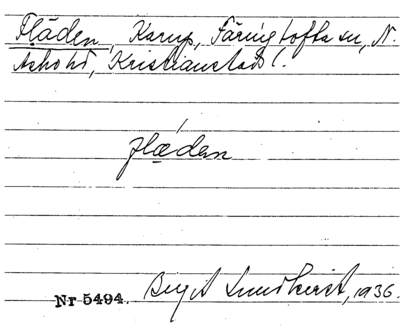 Fläden, Karup, Färingtofta sn, N.
Åsbo hd, Kristianstads l.
flædən
Nr 5494. Birgit Lundkvist, 1936.